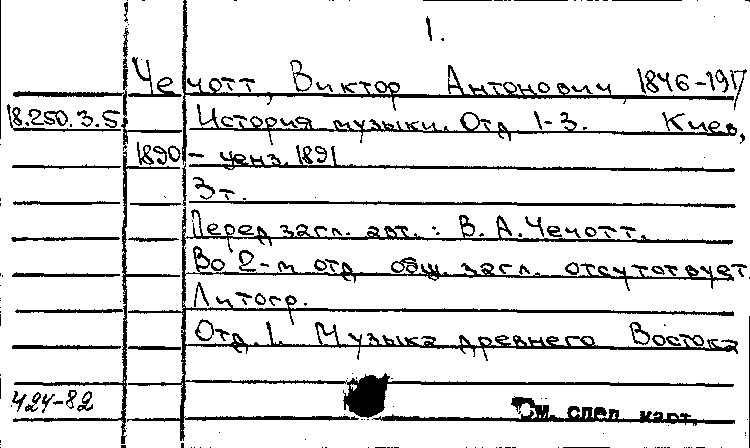 1.
Чечотт, Виктор Антонович, 1846-1917
18.250.3.5 История музыки. Отд. 1-3. Киев,
1890 - ценз. 1891.
3т.
Перед загл. авт.: В. А. Чечотт.
Во 2-м отд. общ. загл. отсутствует.
Литогр.
Отд. 1. Музыка древнего Востока
424-82
См. след. карт.